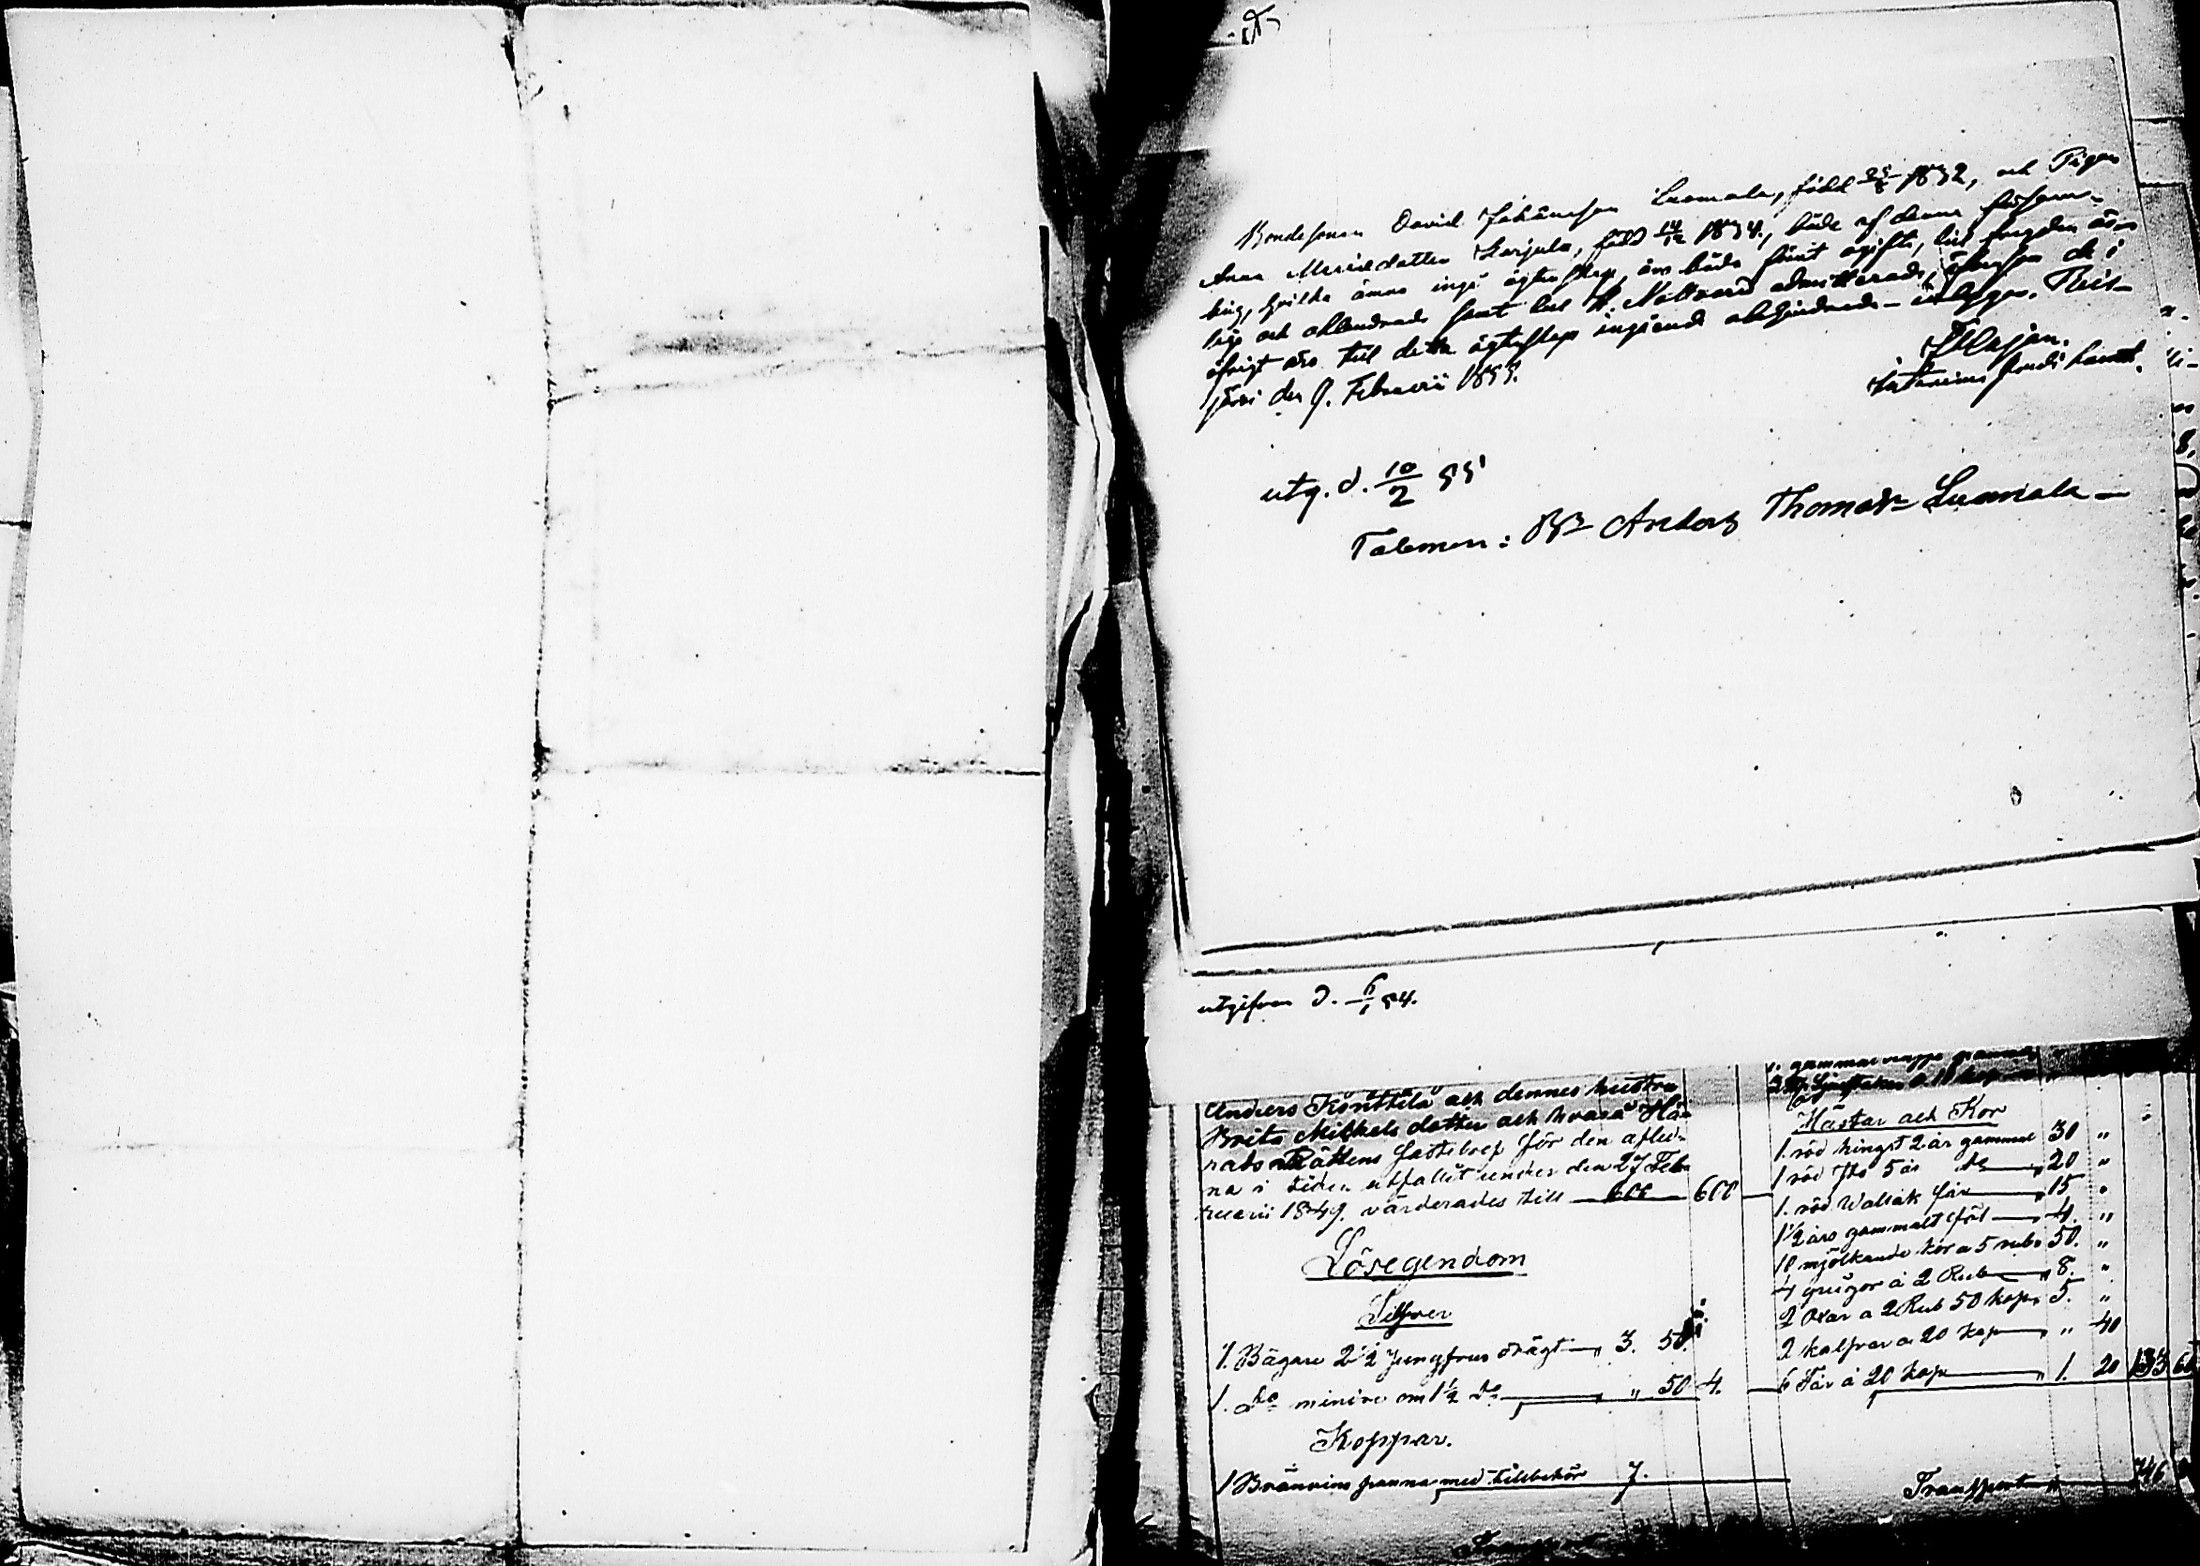 Bondesonen David Johansson Luomala, född 25/8 1832, och Pigan
Anna Mariædotter Karjula, född 14/12 1834, både af denna försam-
ling, hvilka ämna ingå ägtenskap, äro både förut ogifta, till frejden äro-
liga och oklandrade samt till H. Nattvard admitterade, öfverhsen de i
öfrigt äro till detta ägtenskaps ingående obehindrade - intygar. Reis-
järvi den 9. Februarii 1855.
utg. d. 10/2 55
Taleman: Bd Anders Thomass. Luomala
utgifven d. 6/1 54.
Anders Kinttilä och dennes hustru
Brita Mikkels dotter och hvarå Hä-
rads Rättens fastebref för den aflid-
na i tiden utfallit under den 27 Feb-
ruarii 1849. värderades till 600 600
Lösegendom
Silfver
1. Bägare 2 1/2 Jungfrus drägt " 3. 50.
1. Do mindre om 1 1/2 do " 50 4.
Koppar.
1 Bränvins panna med tillbehör 7.
1. gammal
Hästar och Kor
1. röd hingst 2 år gammal 30 "
1 röd Sto 5 år do " 20 "
1. röd Wallak " 15 "
1 1/2 års gammalt föl " 4. "
10 mjölkande kor a 5 rub. 50. "
4 qvigor á 2 Rub " 8. "
2 Oxar a 2 Rub 50 kop. 5. "
2 kalfvar a 20 kop " 40
6 Får á 20 kop " 1. 20 133 60
Transport " 746